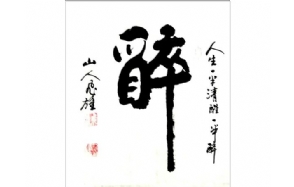 人生一半清醒一半醉
醉
山人雄